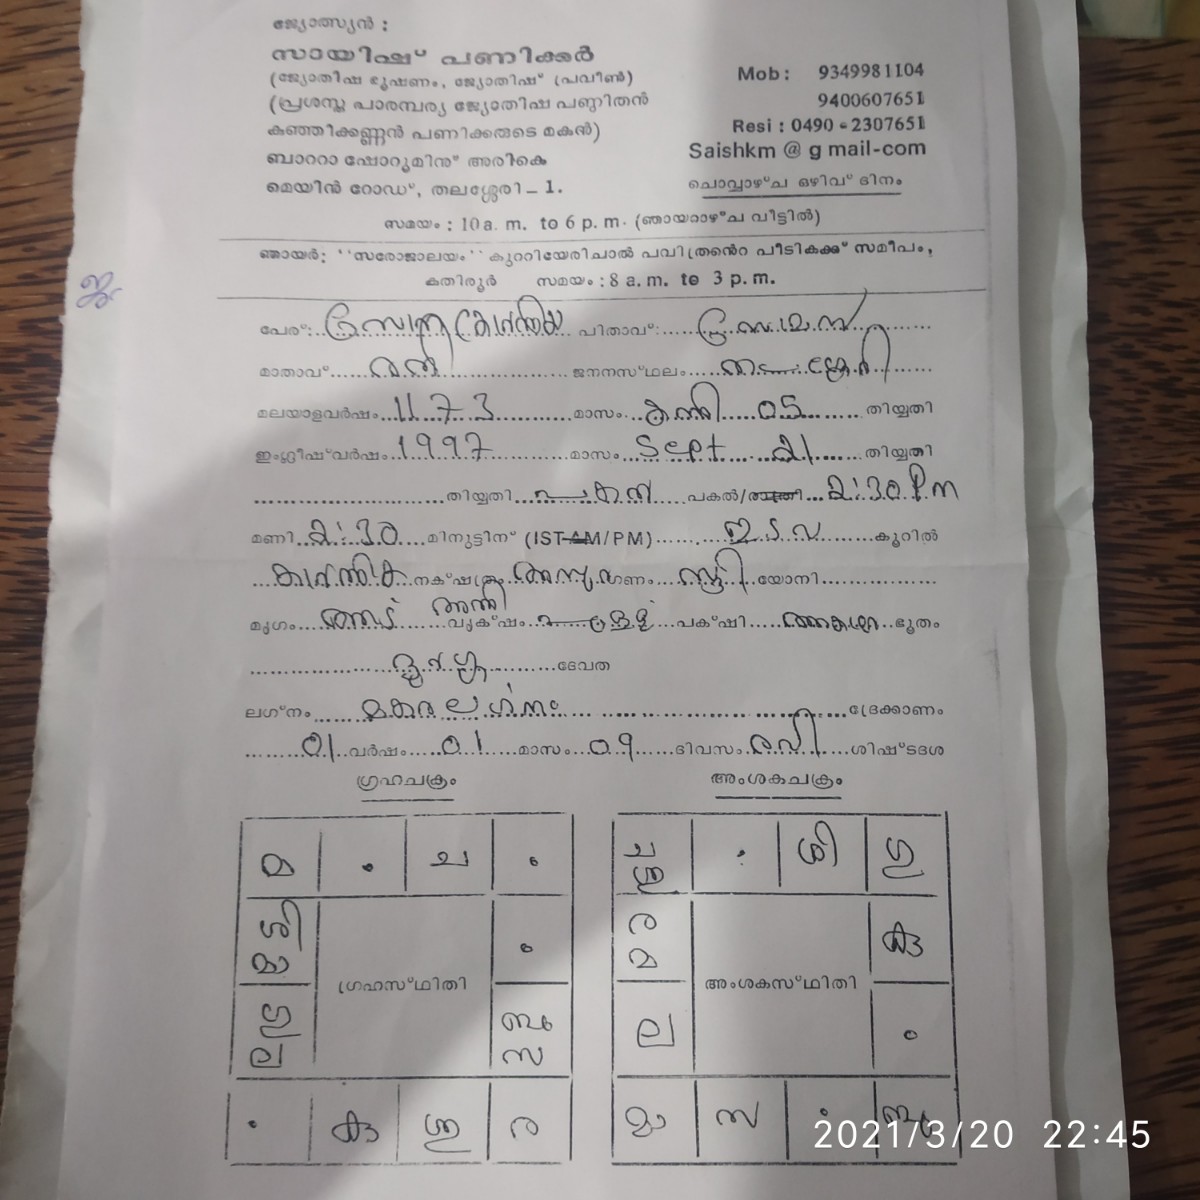 ജ്യോത്സ്യൻ :
സായിഷ് പണിക്കർ
(ജ്യോതിഷ ഭൂഷണം, ജ്യോതിഷ് പ്രവീൺ)
(പ്രശസ്ത പാരമ്പര്യ ജ്യോതിഷ പണ്ഡിതൻ
കുഞ്ഞിക്കണ്ണൻ പണിക്കരുടെ മകൻ)
ബാററാ ഷോറൂമിനു് അരികെ
മെയിൻ റോഡ്, തലശ്ശേരി – 1.
Mob : 9349981104
9400607651
Resi : 0490 - 2307651
Saishkm @ g mail-com
ചൊവ്വാഴ്ച ഒഴിവ് ദിനം
സമയം : 10 a. m. to 6 p. m. (ഞായറാഴ്ച വീട്ടിൽ)
ഞായർ: ''സരോജാലയം'' കുററിയേരിചാൽ പവിത്രൻറെ പീടികക്ക് സമീപം,
കതിരൂർ സമയം : 8 a. m. to 3 p. m.
പേര്: പിതാവ്:
മാതാവ് ജനനസ്ഥലം
മലയാളവർഷം 1173 മാസം കന്നി 05 തിയ്യതി
ഇംഗ്ലീഷ് വർഷം 1997 മാസം Sept 21 തിയ്യതി
തിയ്യതി പകൽ പകൽ/രാത്രി 2:30 Pm
മണി 2:30 മിനുട്ടിന് (IST-AM/PM) ഇടവ കൂറിൽ
കാർത്തിക നക്ഷത്രം അസുര ഗണം സ്ത്രീ യോനി
മൃഗം ആട് അത്തി വൃക്ഷം പുള്ള് പക്ഷി ഭൂതം
ദേവത
ലഗ്നം മകര ലഗ്നം ദ്രേക്കാണം
01 വർഷം 01 മാസം 09 ദിവസം രവി ശിഷ്ടദശ
ഗ്രഹചക്രം അംശകചക്രം
മ ച ശി ഗു
ഗ്രഹസ്ഥിതി അംശകസ്ഥിതി
കു ശു ര മാ സ
2021/3/20 22:45